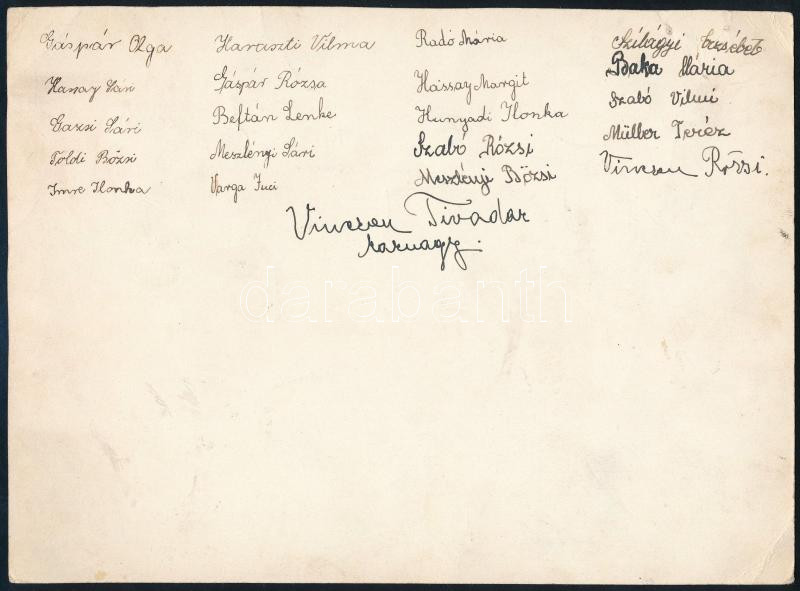 Gáspár Olga
Hanay Sári
Gazsi Sári
Földi Bözsi
Imre Ilonka
Haraszti Vilma
Gáspár Rózsa
Beftán Lenke
Meszlényi Sári
Varga Juci
Radó Mária
Hassay Margit
Hunyadi Ilonka
Szabó Rózsi
Meszlényi Bözsi
Szilágyi Erzsébet
Baka Mária
Szabó Vilmi
Müller Teréz
Rózsi.
Tivadar
karnagy.
darabanth